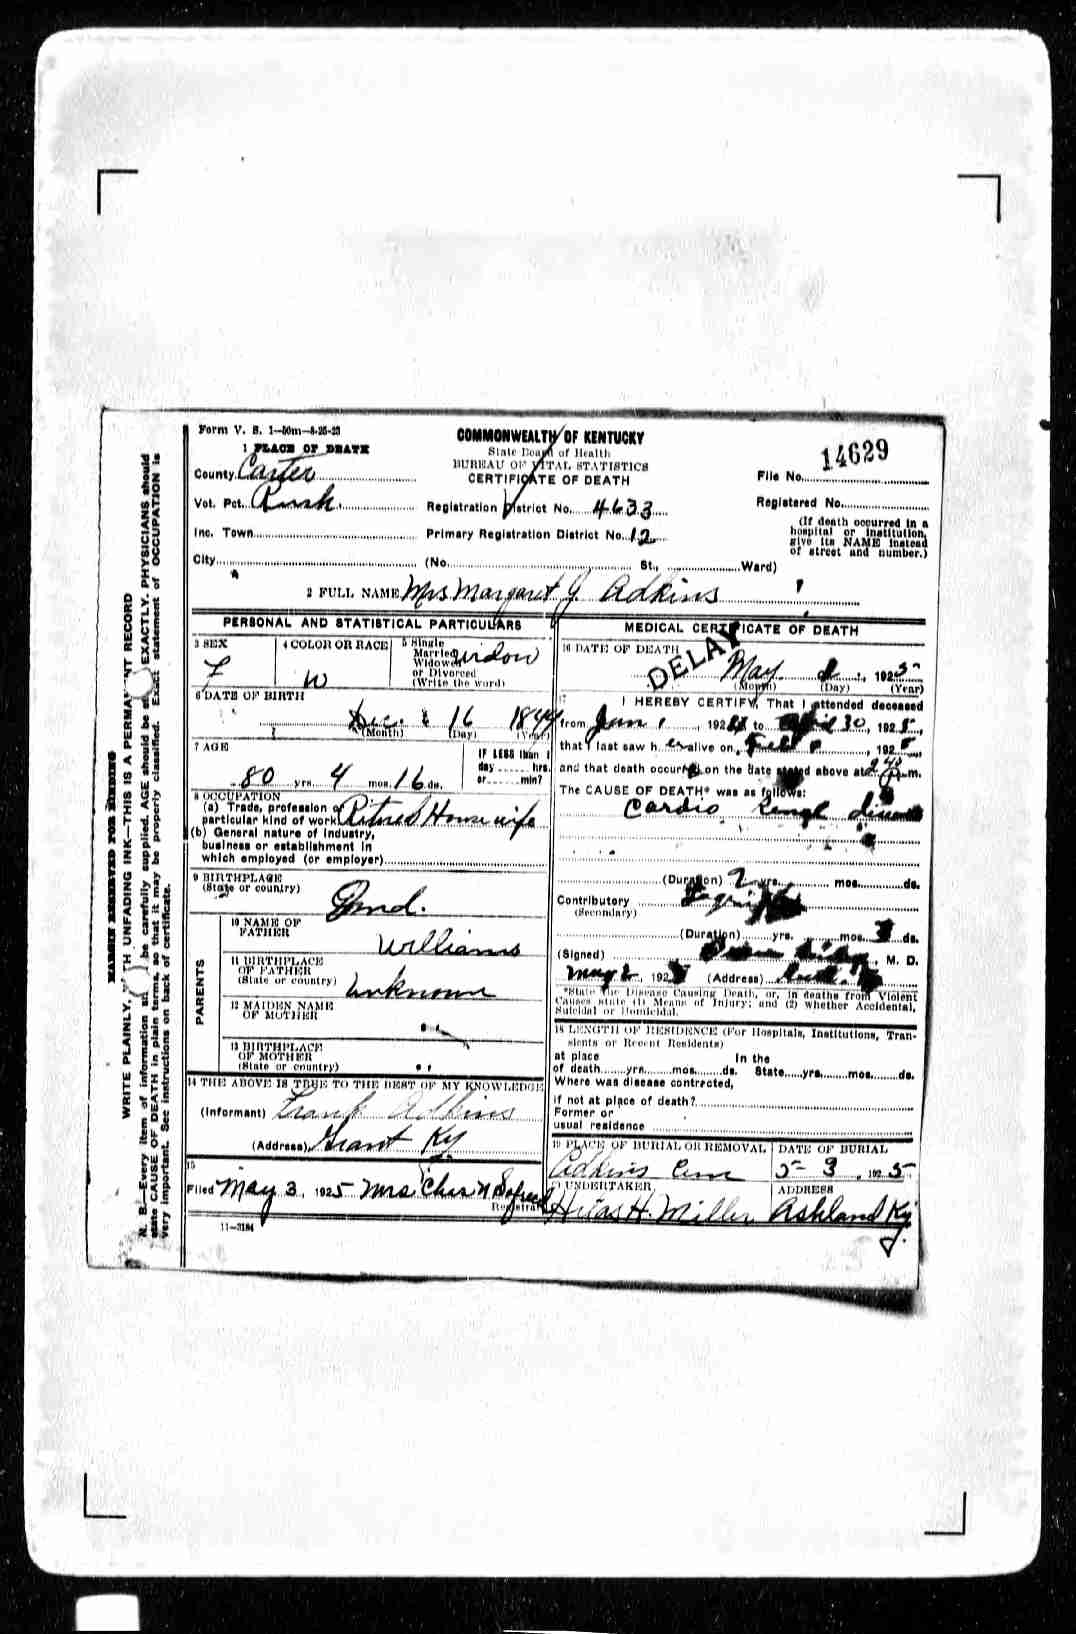 Form V. S. 1—50m—8-25-23
COMMONWEALTH OF KENTUCKY
State Board of Health
BUREAU OF VITAL STATISTICS
CERTIFICATE OF DEATH
14629
File No.
1 PLACE OF DEATH
County Carter
Vot. Pct. Rush
Registration District No. 4633
Registered No.
Inc. Town
Primary Registration District No. 12
(If death occurred in a
hospital or institution,
give its NAME instead
of street and number.)
City
(No. St., Ward)
2 FULL NAME Mrs Margaret J. Adkins
PERSONAL AND STATISTICAL PARTICULARS
3 SEX
F
4 COLOR OR RACE
W
5 Single
Married
Widowed
or Divorced
(Write the word)
widow
6 DATE OF BIRTH
Dec. 16 1844
(Month) (Day) (Year)
7 AGE
80 yrs. 4 mos. 16 ds.
IF LESS than 1
day hrs.
or min?
8 OCCUPATION
(a) Trade, profession or
particular kind of work Retired Housewife
(b) General nature of industry,
business or establishment in
which employed (or employer)
9 BIRTHPLACE
(State or country)
Ind.
PARENTS
10 NAME OF
FATHER
Williams
11 BIRTHPLACE
OF FATHER
(State or country)
Unknown
12 MAIDEN NAME
OF MOTHER
"
13 BIRTHPLACE
OF MOTHER
(State or country)
"
14 THE ABOVE IS TRUE TO THE BEST OF MY KNOWLEDGE
(Informant) Frank Adkins
(Address) Grant Ky.
15
Filed May 3, 1925 Mrs Chas N
Registrar
11—3184
MEDICAL CERTIFICATE OF DEATH
DELAY
16 DATE OF DEATH
May 2, 1925
(Month) (Day) (Year)
17 I HEREBY CERTIFY, That I attended deceased
from Jan 1, 192 to April 30, 1925,
that I last saw her alive on, 192
and that death occurred on the date stated above at 2 40 P. m.
The CAUSE OF DEATH* was as follows:
Cardio Renal disease
(Duration) 2 yrs. mos. ds.
Contributory
(Secondary)
(Duration) yrs. mos. ds.
(Signed) , M. D.
May 2 192 (Address)
*State the Disease Causing Death, or, in deaths from Violent
Causes state (1) Means of Injury; and (2) whether Accidental,
Suicidal or Homicidal.
18 LENGTH OF RESIDENCE (For Hospitals, Institutions, Tran-
sients or Recent Residents)
at place In the
of death yrs. mos. ds. State yrs. mos. ds.
Where was disease contracted,
if not at place of death?
Former or
usual residence
19 PLACE OF BURIAL OR REMOVAL
Adkins Cem
DATE OF BURIAL
5-3, 1925
20 UNDERTAKER,
H. Miller
ADDRESS
Ashland Ky.
MARGIN RESERVED FOR BINDING
WRITE PLAINLY, WITH UNFADING INK—THIS IS A PERMANENT RECORD
N. B.—Every item of information should be carefully supplied. AGE should be stated EXACTLY. PHYSICIANS should
state CAUSE OF DEATH in plain terms, so that it may be properly classified. Exact statement of OCCUPATION is
very important. See instructions on back of certificate.